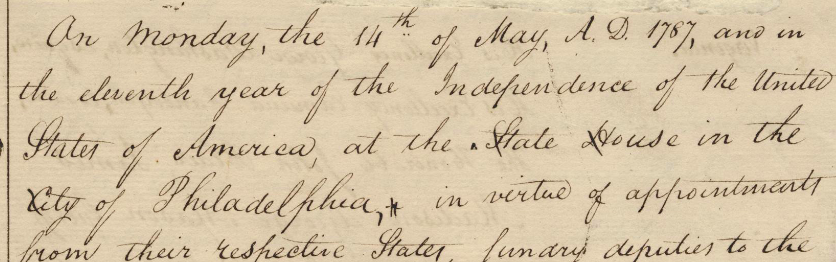 On Monday, the 14th of May, A. D. 1787, and in
the eleventh year of the Independence of the United
States of America, at the State House in the
City of Philadelphia, in virtue of appointments
from their respective States, sundry deputies to the